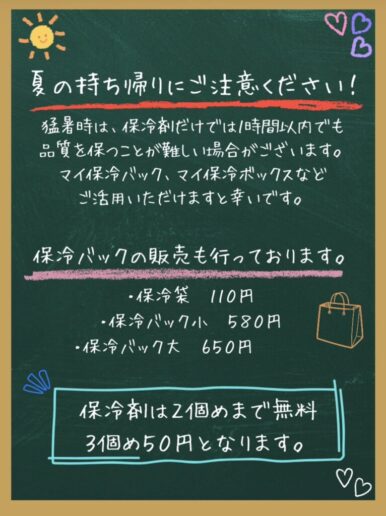 夏の持ち帰りにご注意ください!
猛暑時は、保冷剤だけでは1時間以内でも
品質を保つことが難しい場合がございます。
マイ保冷バック、マイ保冷ボックスなど
ご活用いただけますと幸いです。
保冷バックの販売も行っております。
・保冷袋 110円
・保冷バック小 580円
・保冷バック大 650円
保冷剤は2個めまで無料
3個め50円となります。